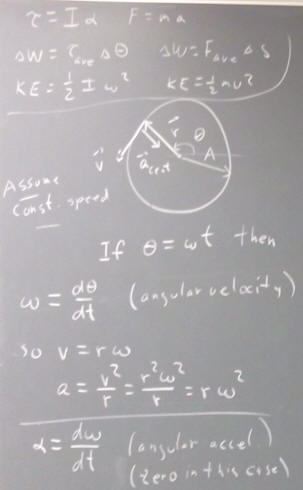 τ = I α   F = m a
ΔW = τ_ave Δθ   ΔW = F_ave Δs
KE = ½ I ω²   KE = ½ m v²
r⃗ θ
v⃗ a⃗_cent A
Assume
Const. speed
If θ = ωt then
ω = dθ/dt (angular velocity)
so v = rω
a = v²/r = r²ω²/r = rω²
α = dω/dt (angular accel.)
(zero in this case)